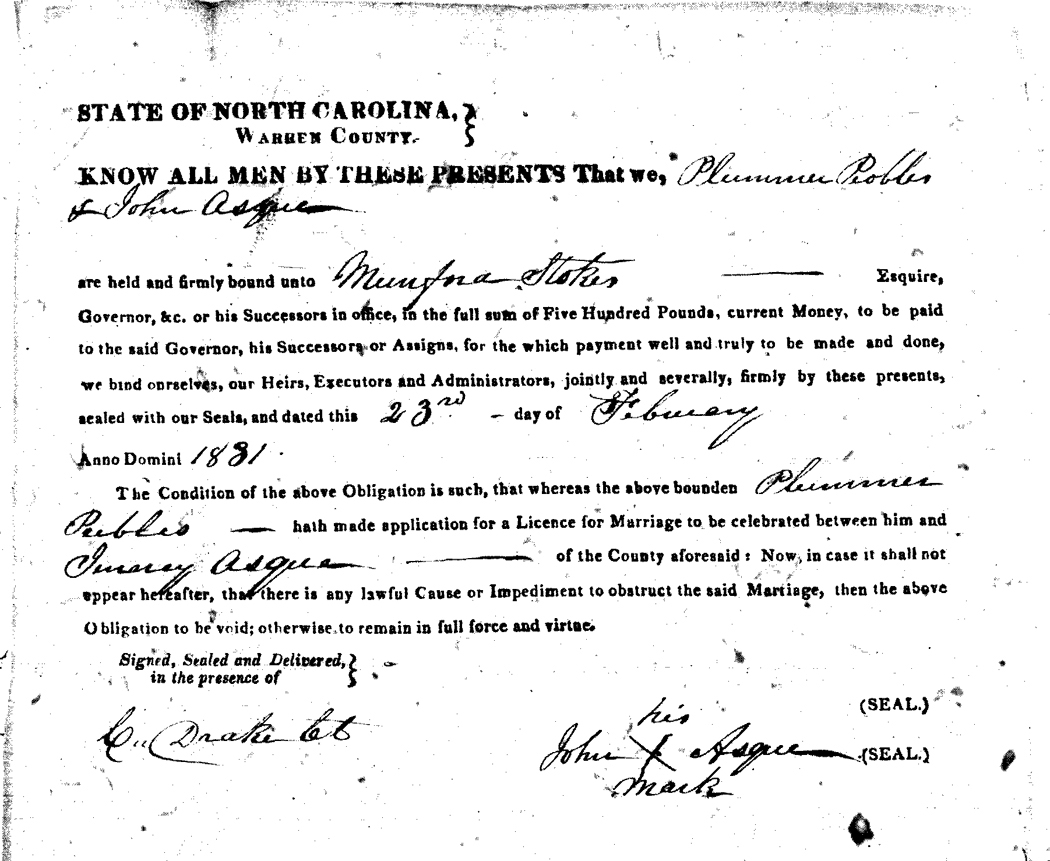 STATE OF NORTH CAROLINA,
WARREN COUNTY.
KNOW ALL MEN BY THESE PRESENTS That we, Plummer Peobles
& John Asque
are held and firmly bound unto Munford Stokes — Esquire,
Governor, &c. or his Successors in office, in the full sum of Five Hundred Pounds, current Money, to be paid
to the said Governor, his Successors or Assigns, for the which payment well and truly to be made and done,
we bind ourselves, our Heirs, Executors and Administrators, jointly and severally, firmly by these presents,
sealed with our Seals, and dated this 23rd - day of February
Anno Domini 1831
The Condition of the above Obligation is such, that whereas the above bounden Plummer
Peebles — hath made application for a Licence for Marriage to be celebrated between him and
Asque — of the County aforesaid: Now, in case it shall not
appear hereafter, that there is any lawful Cause or Impediment to obstruct the said Marriage, then the above
Obligation to be void; otherwise to remain in full force and virtue.
Signed, Sealed and Delivered,
in the presence of
(SEAL.)
C. Drake Ct
his
John X Asque (SEAL.)
mark